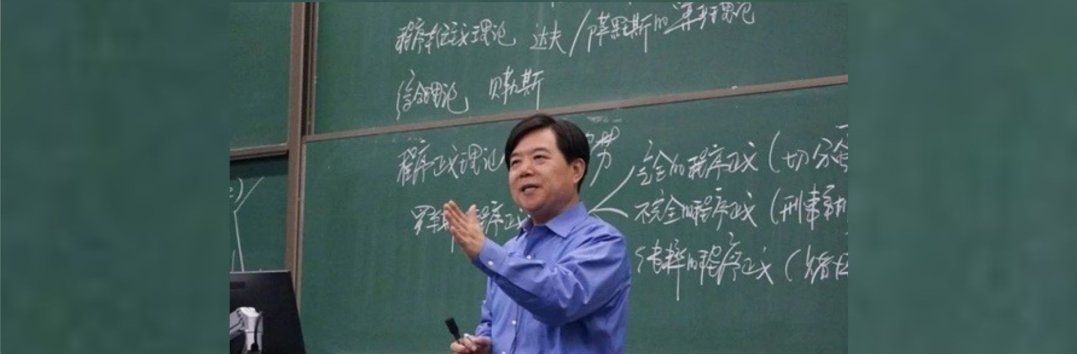 程序本位主义理论 达夫/萨默斯的 理论
综合理论 贝勒斯
程序正义理论
程序正义
完全的程序正义 (切分蛋
不完全的程序正义 (刑事
纯粹的程序正义 (